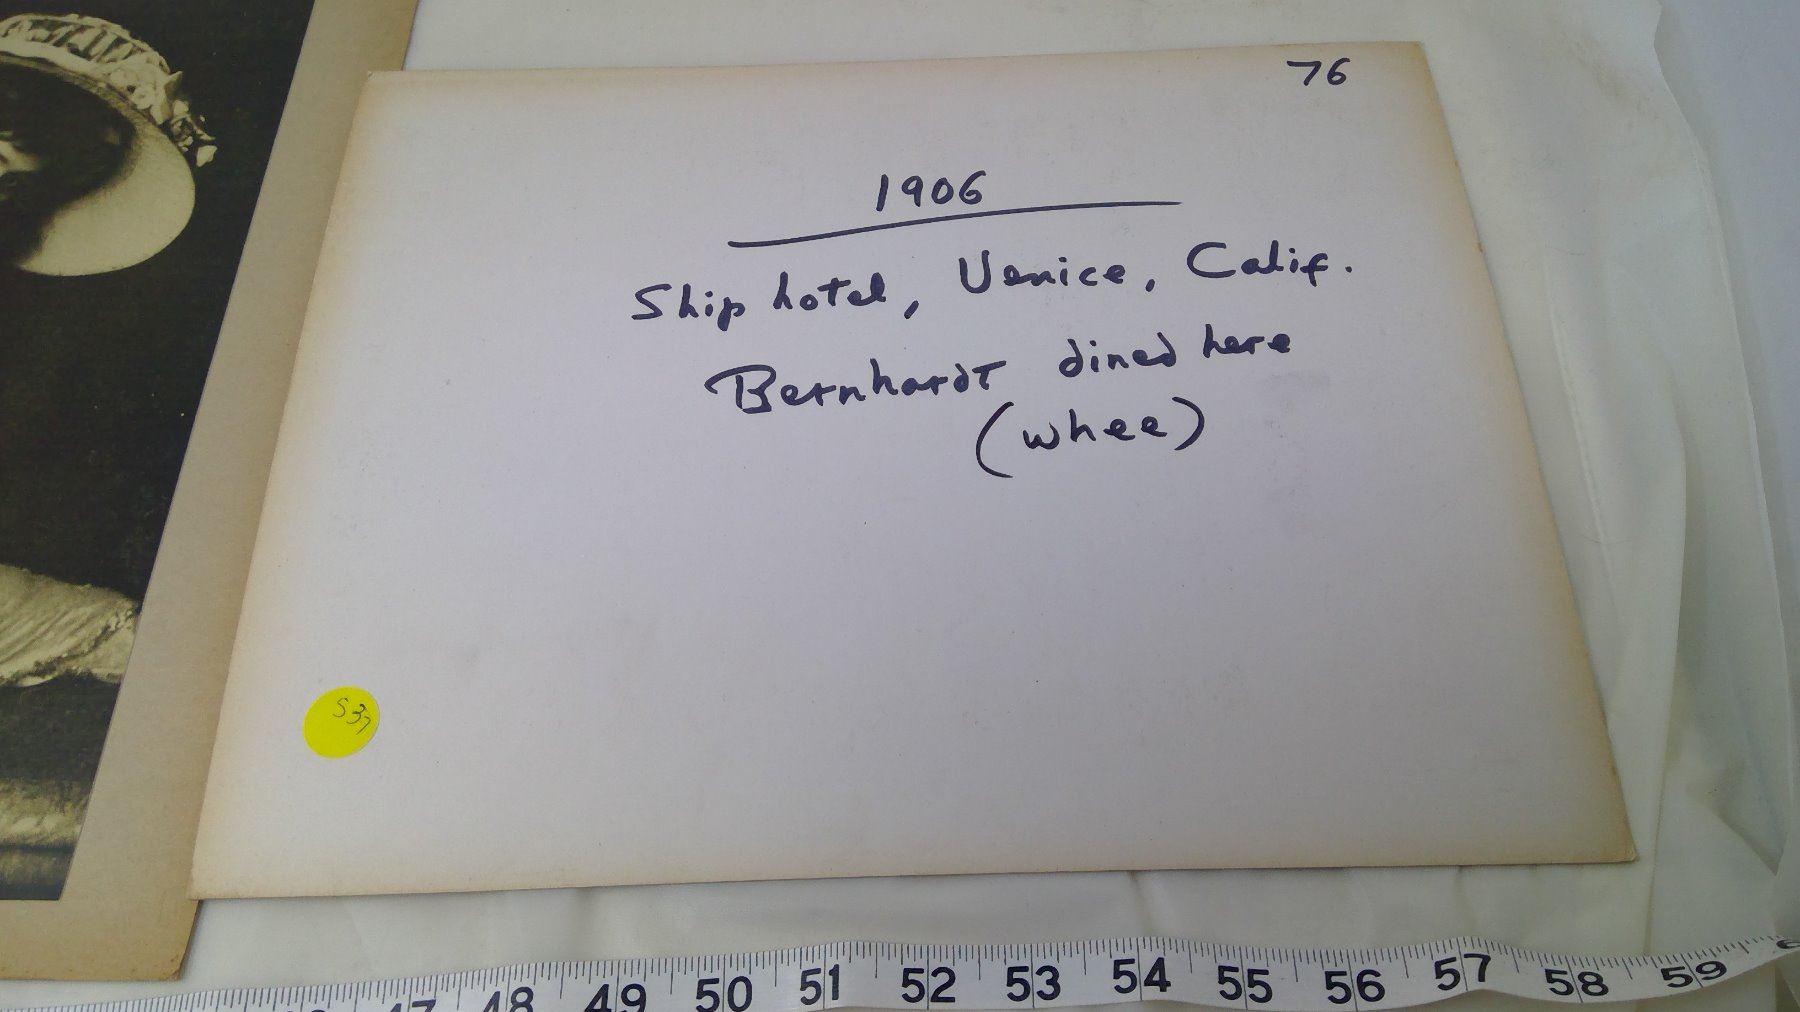 76
1906
Ship hotel, Venice, Calif.
Bernhardt dined here
(whee)
S37
47 48 49 50 51 52 53 54 55 56 57 58 59